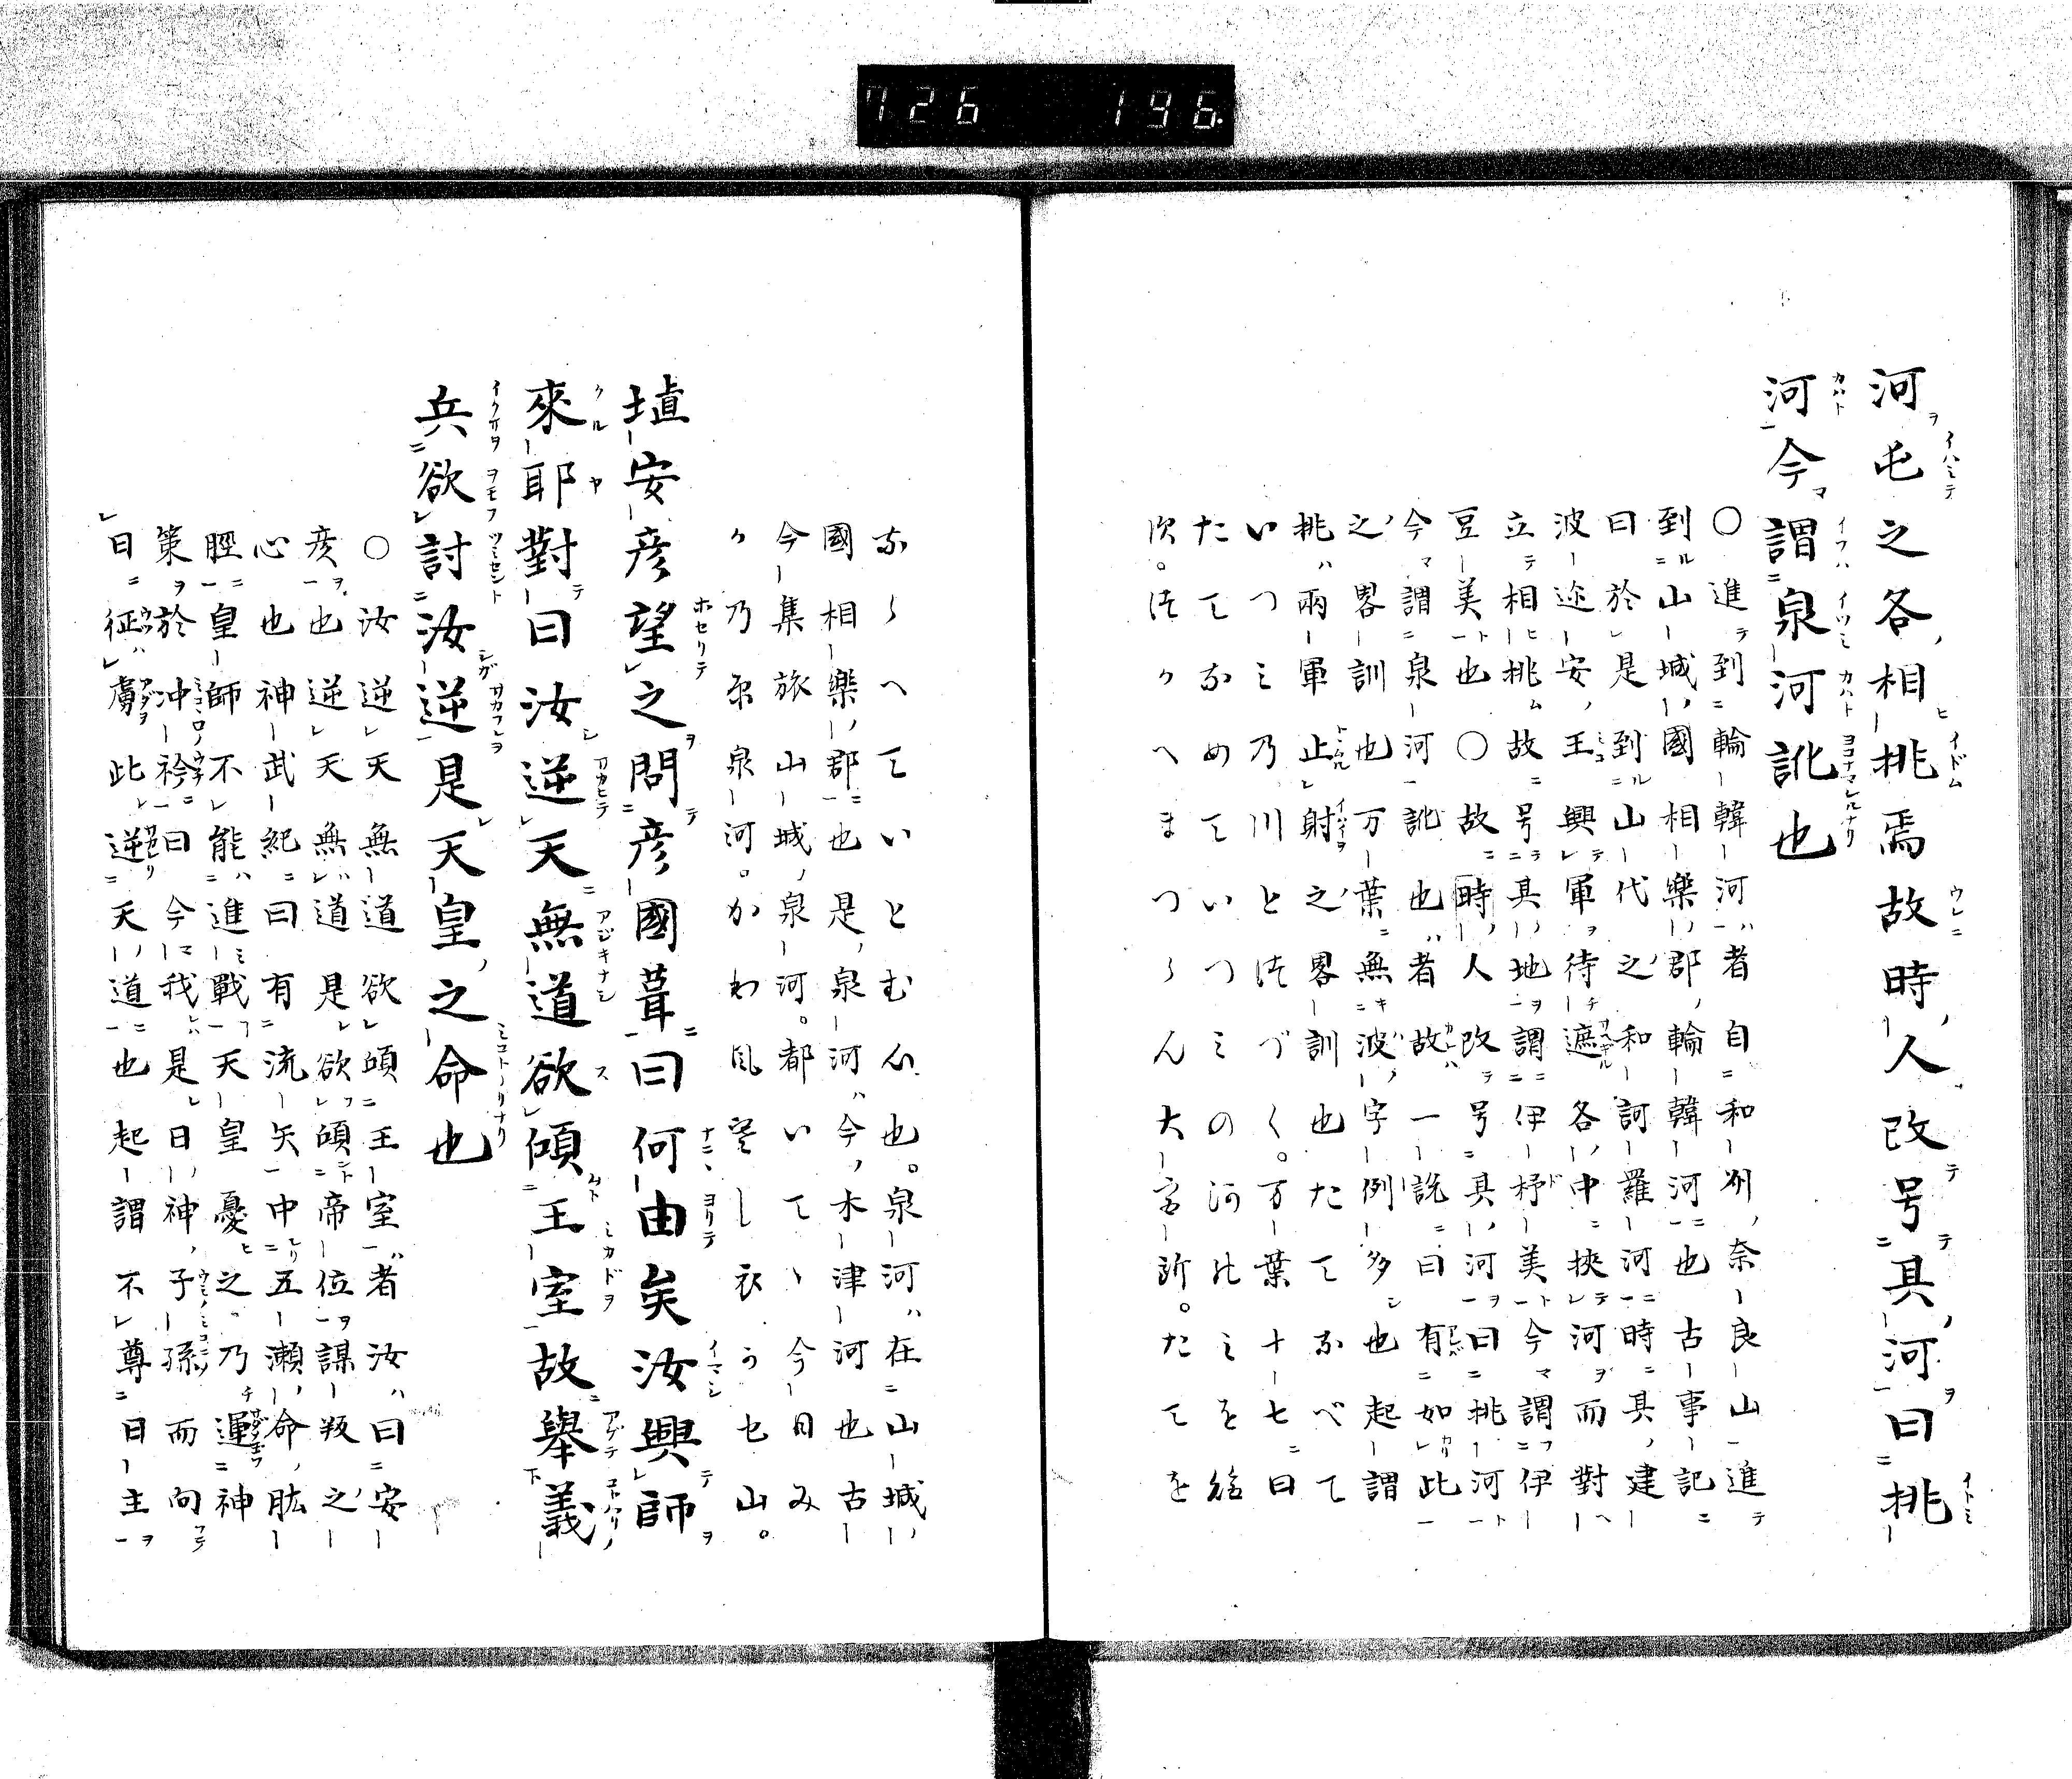 726 196
河屯之各相挑焉故時人改号其河曰挑
河今謂泉河訛也
〇進到輪韓河者自和州奈良山進
到山城國相樂郡輪韓河也古事記
曰於是到山代之和訶羅河時其建
波迩安王興軍待遮各中挾河而對
立相挑故号其地謂伊杼美今謂伊
豆美也〇故時人改号其河曰挑河
今謂泉河訛也者故一說曰有如此
之畧訓也万葉無波字例多也起謂
挑兩軍止射之畧訓也たてなべて
いつみ乃川とつゞく。万葉十七曰
たてなめていつみの河のみを
つかへまつらん大宮所。たてを
なへていとむ心也。泉河ハ在山城
國相樂郡也是泉河ハ今木津河也古
今集旅山城泉河。都いてゝ今日み
か乃原泉河。かわ風寒し衣かせ山。
埴安彦望之問彦國葺曰何由矣汝興師
來耶對曰汝逆天無道欲傾王室故舉義
兵欲討汝逆是天皇之命也
〇汝逆天無道欲傾王室者汝ハ曰安
彦也逆天無道是欲傾帝位謀叛之
心也神武紀曰有流矢中五瀬命肱
脛皇師不能進戰天皇憂之乃運神
策於沖衿曰今我是日神子孫而向
日征虜此逆天道也起謂不尊日主